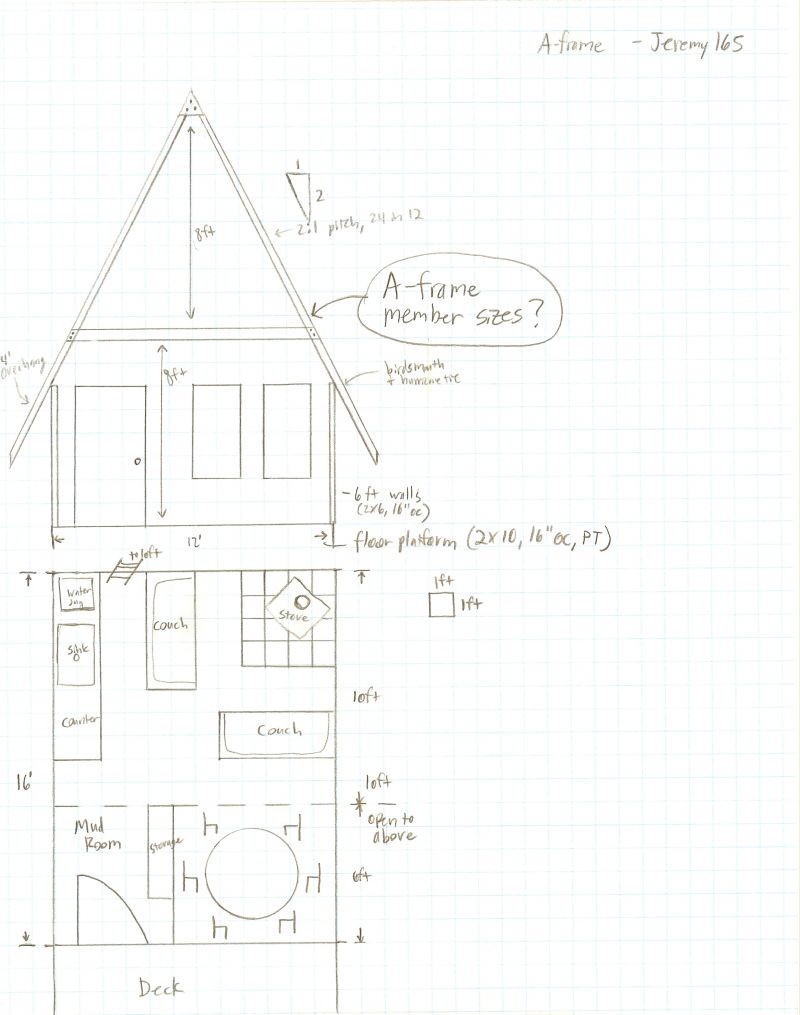 A-frame - Jeremy165
1
2
2:1 pitch, 24 in 12
8ft
A-frame
member sizes?
4'
overhang
8ft
birdsmouth
+ hurricane tie
- 6ft walls
(2x6, 16"oc)
12'
floor platform (2x10, 16"oc, PT)
to loft
water
jug
couch
stove
1ft
1ft
Sink
loft
counter
couch
16'
loft
open to
above
Mud
Room
storage
6ft
Deck